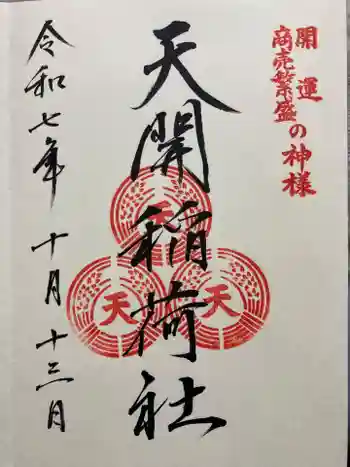 開運
商売繁盛の神様
天開稲荷社
天
天
天
令和七年十月十三日